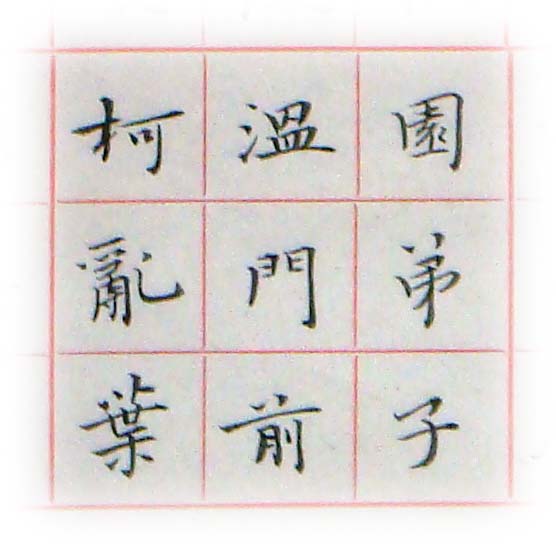 園弟子
溫門前
柯亂葉